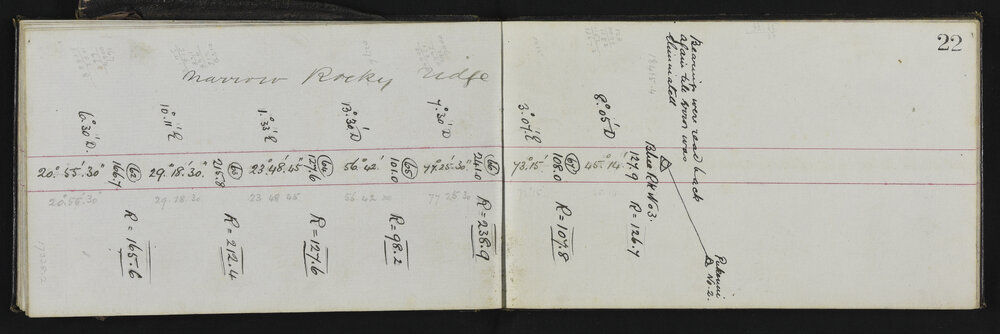 22
narrow Rocky ridge
Bearings were read back
again till error was
eliminated
Pukenui
△ No. 2.
△
Blue RK No 3.
127.9
R = 126.7
8° 05' D
45° 14'
67
108.0
R = 107.8
3° 07' E
73° 15'
66
241.0
R = 238.9
7° 30' D
77° 25' 30"
77 25 30
65
101.0
R = 98.2
13° 30' D
56° 42'
56 42 00
64
127.6
R = 127.6
1° 33' E
23° 48' 45"
23 48 45
63
215.8
R = 212.4
10° 11' E
29° 18' 30"
29 18 30
62
166.7
R = 165.6
6° 30' D.
20° 55' 30"
20° 55' 30